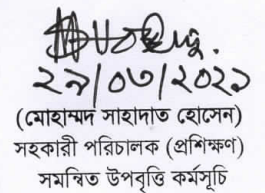 ২৯/০৩/২০২১
(মোহাম্মদ সাহাদাত হোসেন)
সহকারী পরিচালক (প্রশিক্ষণ)
সমন্বিত উপবৃত্তি কর্মসূচি